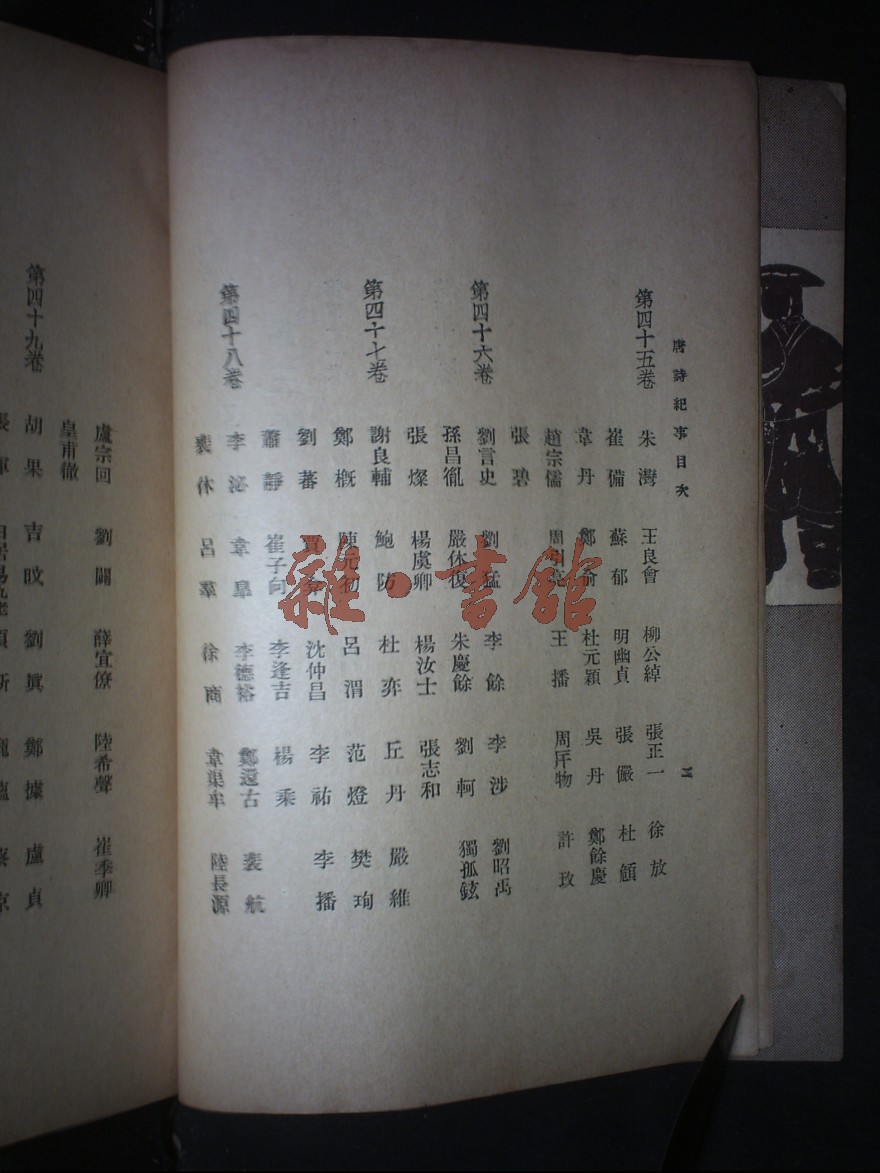 唐詩紀事目次
第四十五卷 朱灣 王良會 柳公綽 張正一 徐放
崔備 蘇郁 明幽貞 張儼 杜頠
韋丹 鄭俞 杜元穎 吳丹 鄭餘慶
趙宗儒 王播 周厈物 許玫
張碧
第四十六卷 劉言史 劉猛 李餘 李涉 劉昭禹
孫昌胤 嚴休復 朱慶餘 劉軻 獨孤鉉
張燦 楊虞卿 楊汝士 張志和
第四十七卷 謝良輔 鮑防 杜弈 丘丹 嚴維
鄭概 陳元初 呂渭 范燈 樊珣
劉蕃 賈弇 沈仲昌 李祐 李播
蕭靜 崔子向 李逢吉 楊乘
第四十八卷 李泌 韋皐 李德裕 鄭還古 裴航
裴休 呂羣 徐商 韋渠牟 陸長源
盧宗回 劉闢 薛宜僚 陸希聲 崔季卿
皇甫徹
第四十九卷 胡果 吉旼 劉眞 鄭據 盧貞
雜·書館